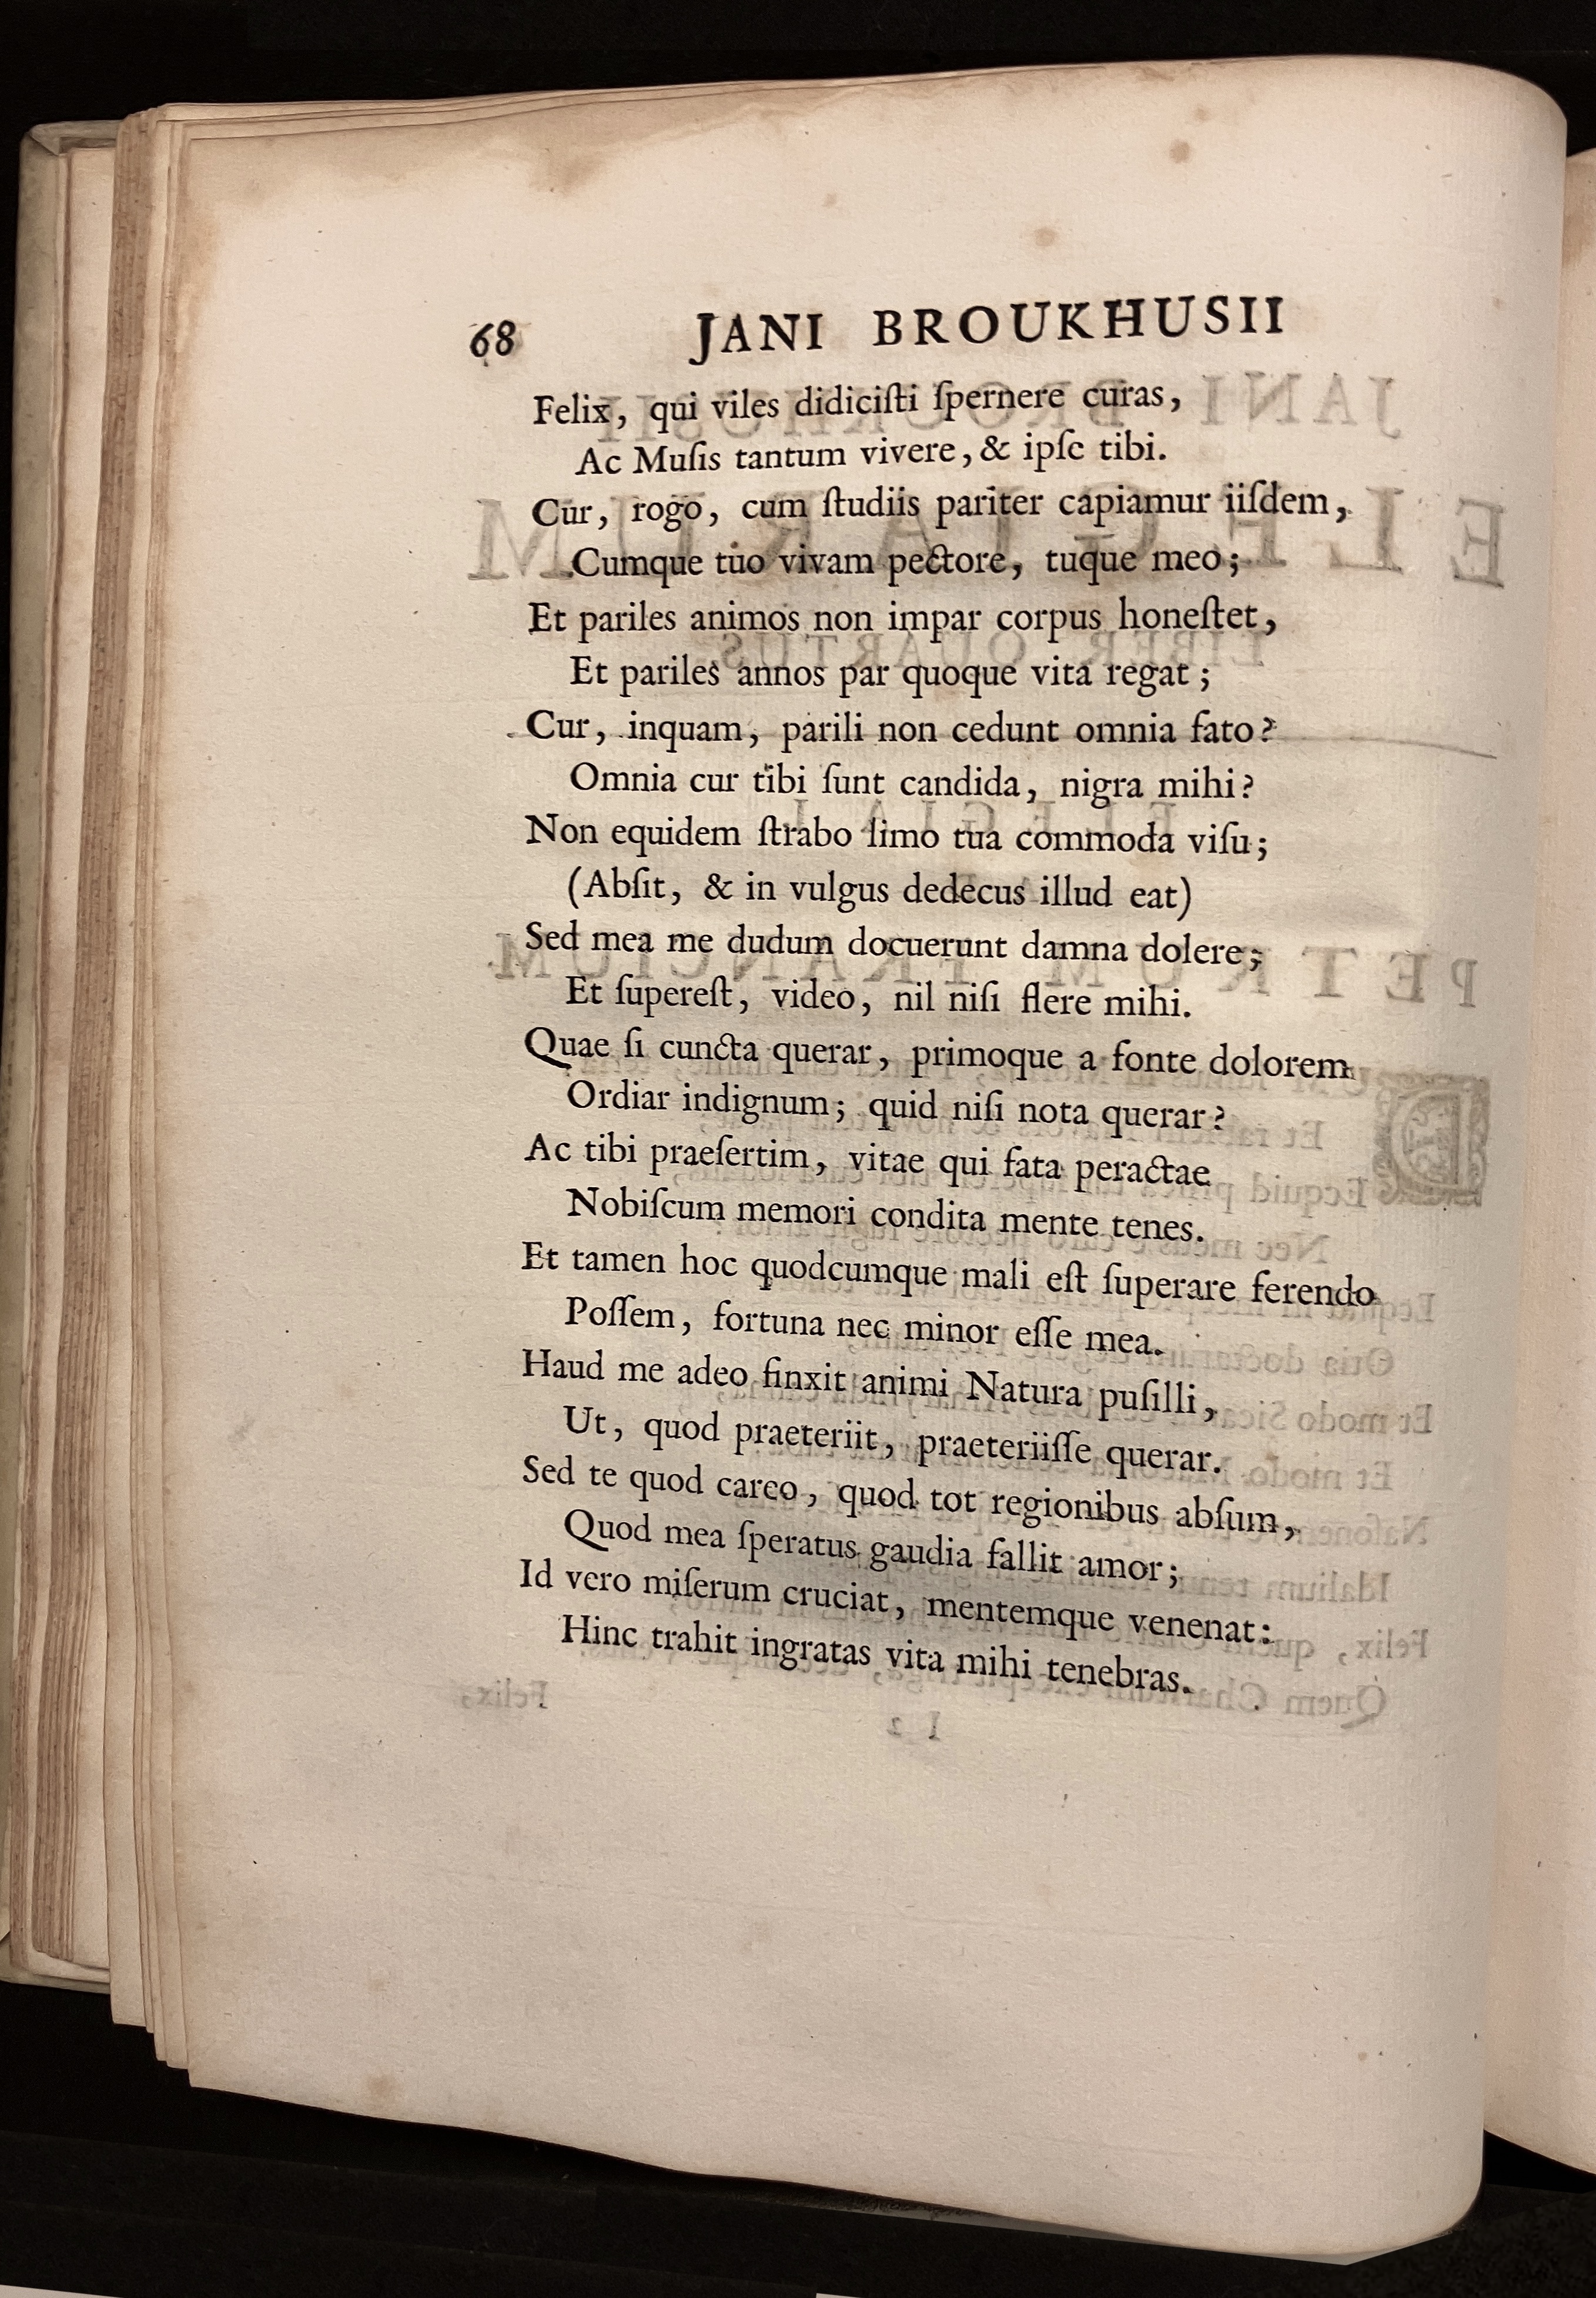 68 JANI BROUKHUSII
Felix, qui viles didiciſti ſpernere curas,
Ac Muſis tantum vivere, & ipſe tibi.
Cur, rogo, cum ſtudiis pariter capiamur iiſdem,
Cumque tuo vivam pectore, tuque meo;
Et pariles animos non impar corpus honeſtet,
Et pariles annos par quoque vita regat;
Cur, inquam, parili non cedunt omnia fato?
Omnia cur tibi ſunt candida, nigra mihi?
Non equidem ſtrabo limo tua commoda viſu;
(Abſit, & in vulgus dedecus illud eat)
Sed mea me dudum docuerunt damna dolere;
Et ſupereſt, video, nil niſi flere mihi.
Quae ſi cuncta querar, primoque a fonte dolorem
Ordiar indignum; quid niſi nota querar?
Ac tibi praeſertim, vitae qui fata peractae
Nobiſcum memori condita mente tenes.
Et tamen hoc quodcumque mali eſt ſuperare ferendo
Poſſem, fortuna nec minor eſſe mea.
Haud me adeo finxit animi Natura puſilli,
Ut, quod praeteriit, praeteriiſſe querar.
Sed te quod careo, quod tot regionibus abſum,
Quod mea ſperatus gaudia fallit amor;
Id vero miſerum cruciat, mentemque venenat:
Hinc trahit ingratas vita mihi tenebras.